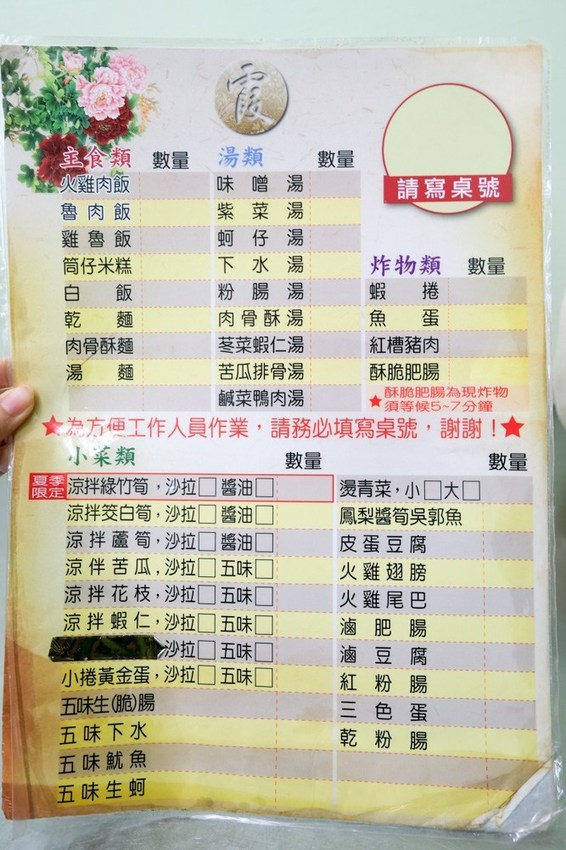 霞
請寫桌號
主食類 數量
火雞肉飯
魯肉飯
雞魯飯
筒仔米糕
白飯
乾麵
肉骨酥麵
湯麵
湯類 數量
味噌湯
紫菜湯
蚵仔湯
下水湯
粉腸湯
肉骨酥湯
苳菜蝦仁湯
苦瓜排骨湯
鹹菜鴨肉湯
炸物類 數量
蝦捲
魚蛋
紅槽豬肉
酥脆肥腸
★酥脆肥腸為現炸物
須等候5~7分鐘
★為方便工作人員作業，請務必填寫桌號，謝謝！★
小菜類 數量
夏季
限定
涼拌綠竹筍，沙拉□ 醬油□
涼拌筊白筍，沙拉□ 醬油□
涼拌蘆筍，沙拉□ 醬油□
涼伴苦瓜，沙拉□ 五味□
涼拌花枝，沙拉□ 五味□
涼拌蝦仁，沙拉□ 五味□
，沙拉□ 五味□
小捲黃金蛋，沙拉□ 五味□
五味生(脆)腸
五味下水
五味魷魚
五味生蚵
數量
燙青菜，小□大□
鳳梨醬筍吳郭魚
皮蛋豆腐
火雞翅膀
火雞尾巴
滷肥腸
滷豆腐
紅粉腸
三色蛋
乾粉腸